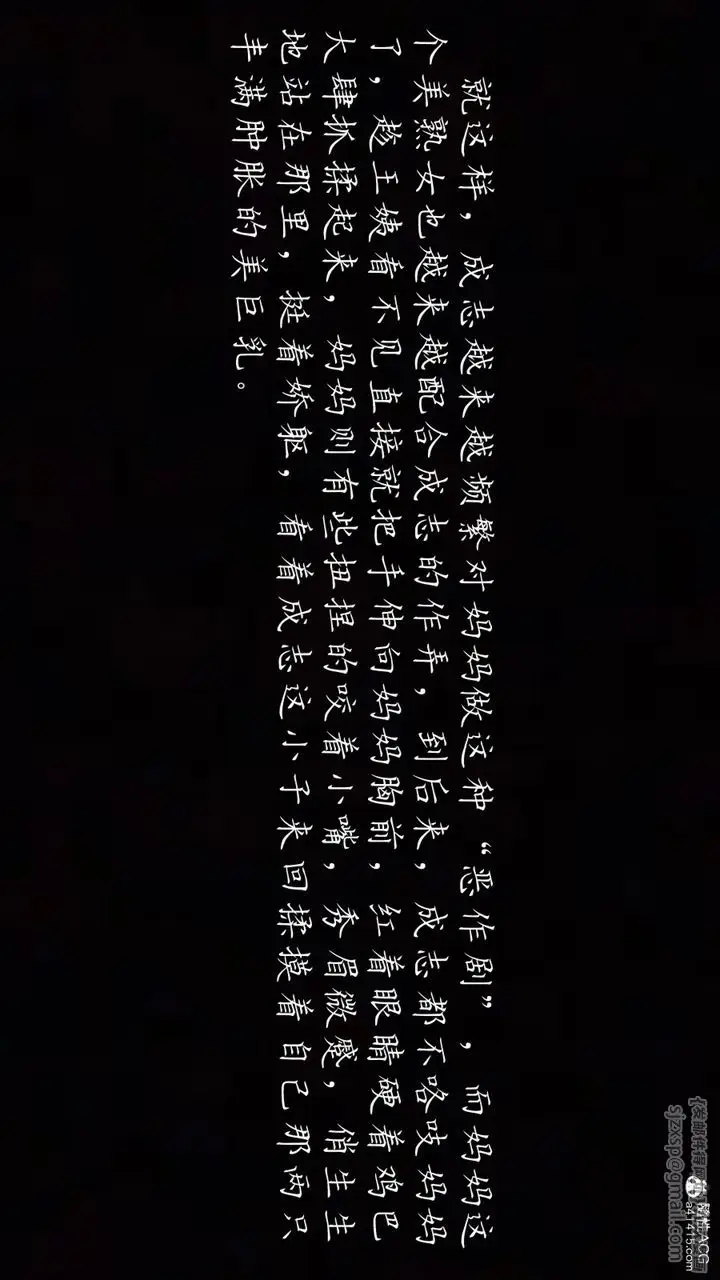 就这样，成志越来越频繁对妈妈做这种“恶作剧”，而妈妈这
个美熟女也越来越配合成志的作弄，到后来，成志都不咯吱妈妈
了，趁王姨看不见直接就把手伸向妈妈胸前，红着眼睛硬着鸡巴
大肆抓揉起来，妈妈则有些扭捏的咬着小嘴，秀眉微蹙，俏生生
地站在那里，挺着娇躯，看着成志这小子来回揉摸着自己那两只
丰满肿胀的美巨乳。
sjzxsp@gmail.com
ACG
a41415.com